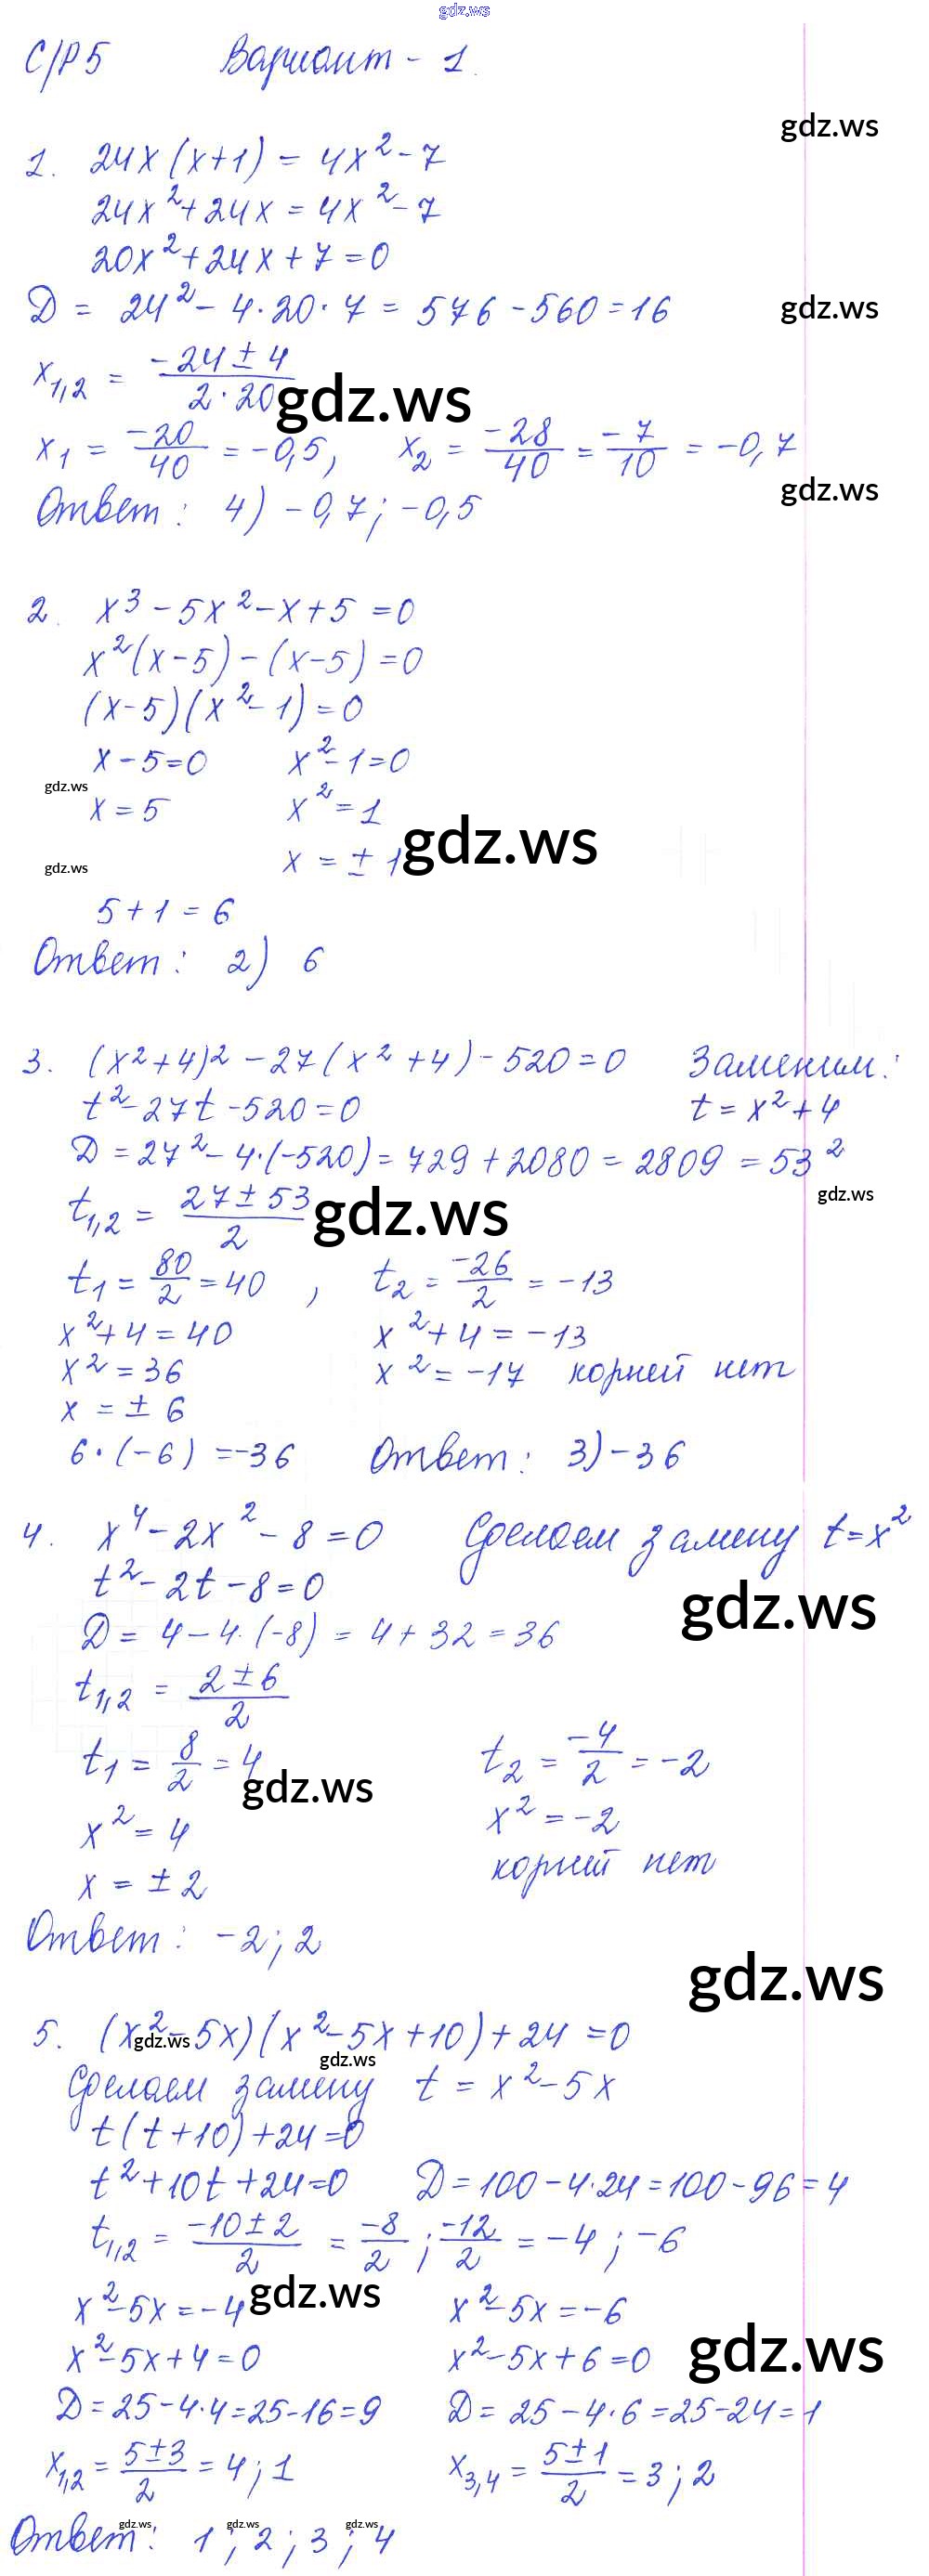 gdz.ws
С/Р 5 Вариант - 1.
gdz.ws
1. 24x(x+1) = 4x² - 7
24x² + 24x = 4x² - 7
20x² + 24x + 7 = 0
D = 24² - 4·20·7 = 576 - 560 = 16
gdz.ws
x₁,₂ = (-24 ± 4)/(2·20)
gdz.ws
x₁ = -20/40 = -0,5, x₂ = -28/40 = -7/10 = -0,7
gdz.ws
Ответ: 4) -0,7; -0,5
2. x³ - 5x² - x + 5 = 0
x²(x-5) - (x-5) = 0
(x-5)(x²-1) = 0
x - 5 = 0 x² - 1 = 0
gdz.ws
x = 5 x² = 1
gdz.ws
x = ± 1
gdz.ws
5 + 1 = 6
Ответ: 2) 6
3. (x²+4)² - 27(x²+4) - 520 = 0 Заменим:
t² - 27t - 520 = 0 t = x² + 4
D = 27² - 4·(-520) = 729 + 2080 = 2809 = 53²
gdz.ws
t₁,₂ = (27 ± 53)/2
gdz.ws
t₁ = 80/2 = 40, t₂ = -26/2 = -13
x² + 4 = 40 x² + 4 = -13
x² = 36 x² = -17 корней нет
x = ± 6
6·(-6) = -36 Ответ: 3) -36
4. x⁴ - 2x² - 8 = 0 Сделаем замену t = x²
t² - 2t - 8 = 0
gdz.ws
D = 4 - 4·(-8) = 4 + 32 = 36
t₁,₂ = (2 ± 6)/2
t₁ = 8/2 = 4 t₂ = -4/2 = -2
gdz.ws
x² = 4 x² = -2
x = ± 2 корней нет
Ответ: -2; 2
gdz.ws
5. (x² - 5x)(x² - 5x + 10) + 24 = 0
gdz.ws
gdz.ws
Сделаем замену t = x² - 5x
t(t+10) + 24 = 0
t² + 10t + 24 = 0 D = 100 - 4·24 = 100 - 96 = 4
t₁,₂ = (-10 ± 2)/2 = -8/2; -12/2 = -4; -6
gdz.ws
x² - 5x = -4 x² - 5x = -6
x² - 5x + 4 = 0 x² - 5x + 6 = 0
gdz.ws
D = 25 - 4·4 = 25 - 16 = 9 D = 25 - 4·6 = 25 - 24 = 1
x₁,₂ = (5 ± 3)/2 = 4; 1 x₃,₄ = (5 ± 1)/2 = 3; 2
gdz.ws gdz.ws gdz.ws
Ответ: 1; 2; 3; 4